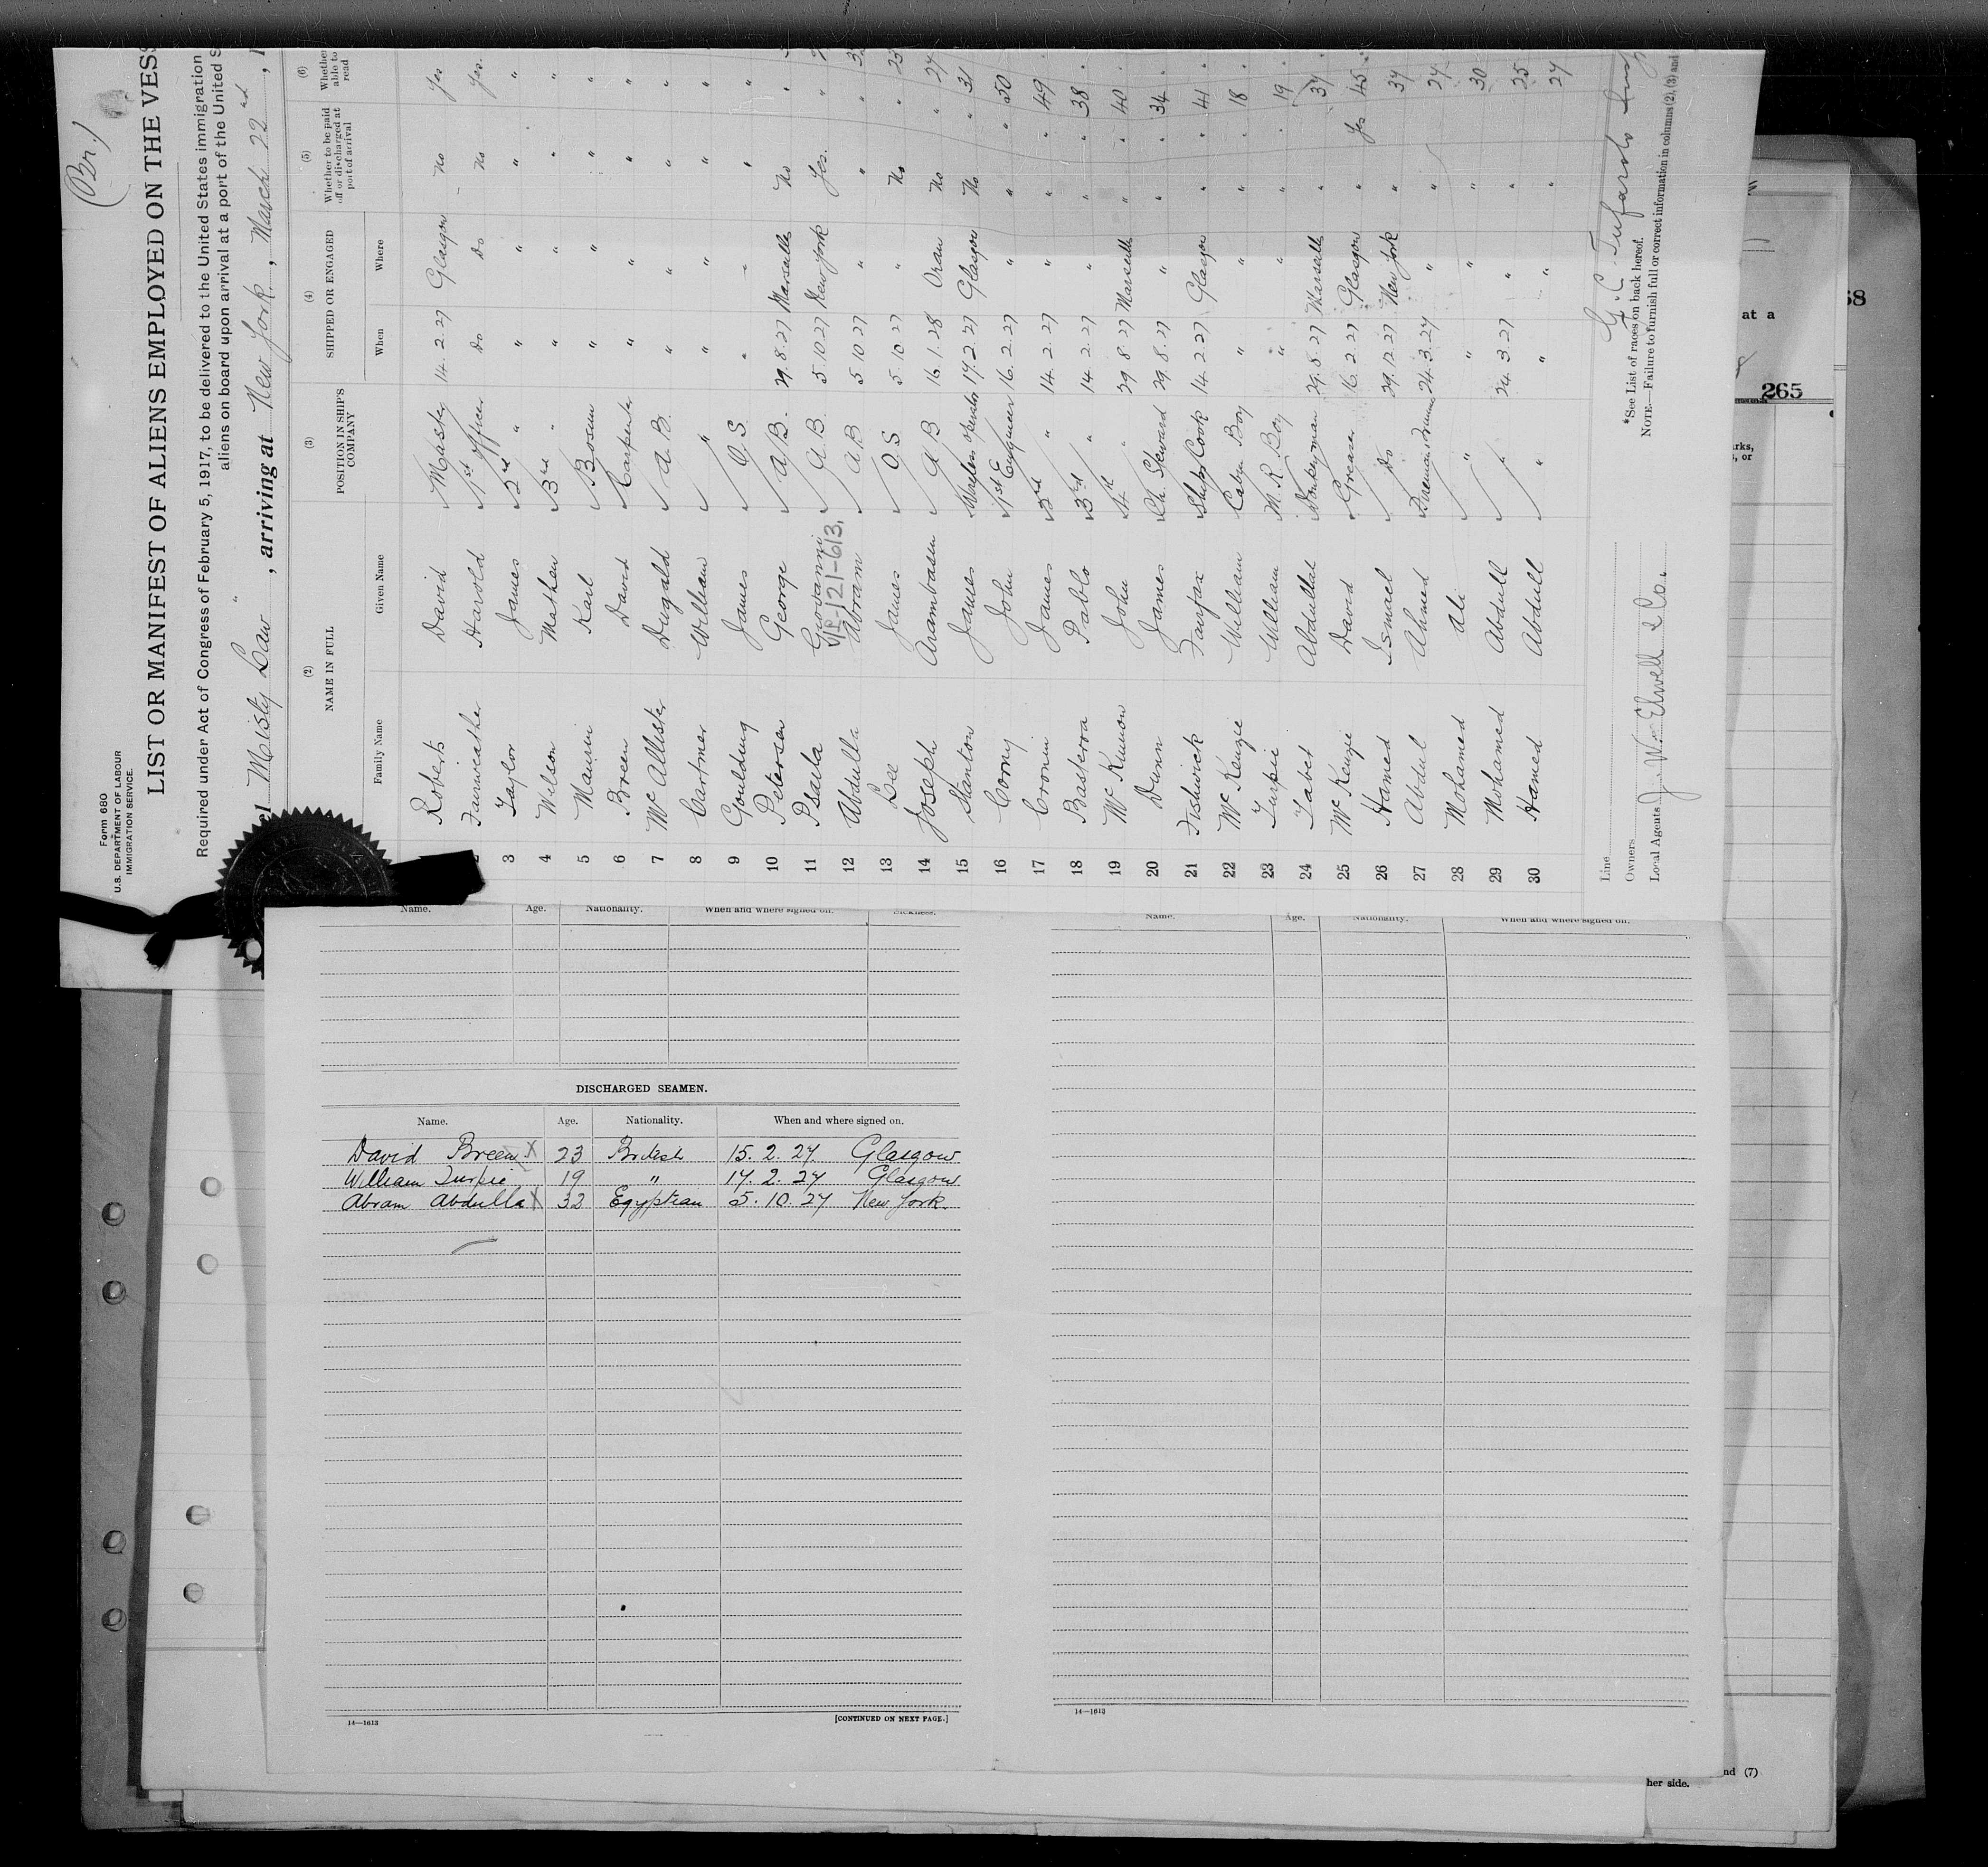 (Br.)
Form 680
U.S. DEPARTMENT OF LABOUR
IMMIGRATION SERVICE.
LIST OR MANIFEST OF ALIENS EMPLOYED ON THE VESS
Required under Act of Congress of February 5, 1917, to be delivered to the United States immigration
aliens on board upon arrival at a port of the United S
el Misty Law , arriving at New York , March 22nd ,
(2) (3) (4) (5) (6)
NAME IN FULL POSITION IN SHIP'S COMPANY SHIPPED OR ENGAGED Whether to be paid off or discharged at port of arrival Whether able to read
Family Name Given Name When Where
Roberts David Master 14. 2. 27 Glasgow No Yes
2 Fairweather Harold 1st Officer Do Do No Yes.
3 Taylor James 2nd " " " " "
4 Wilson Mathew 3rd " " " " "
5 Karl Bosun " " " "
6 Breen David Carpenter " " " "
7 McAllister Dugald A. B. " " " "
8 Cartner William " " " " "
9 Goulding James O. S. " " " "
10 Petersen George A.B. 29. 8. 27 Marseille No "
11 Psaila Giovanni A. B. 5. 10. 27 New York Yes. "
121-613.
12 Abdulla Abram A B 5. 10. 27 " " " 32
13 Lee James O. S. 5. 10. 27 " No " 25
14 Joseph Arambasin A B 16. 1. 28 Oran No " 27
15 Stanton James Wireless Operator 17. 2. 27 Glasgow No " 31
16 Corny John 1st Engineer 16. 2. 27 " " " 50
17 Cronin James " 14. 2. 27 " " " 49
18 Basterra Pablo 3rd " 14. 2. 27 " " " 38
19 McKinnon John 4th " 29. 8. 27 Marseille " " 40
20 Dunn James Ch. Steward 29. 8. 27 " " " 34
21 Fishwick Fairfax Ship's Cook 14. 2. 27 Glasgow " " 41
22 McKenzie William Cabin Boy " " " " 18
23 Turpie William M. R. Boy " " " " 19
24 Tabet Abdullah Donkeyman 29. 8. 27 Marseille " 37
25 McKenzie David Greaser 16. 2. 27 Glasgow " Yes 45
26 Hamed Ismael Do 29. 12. 27 New York " 37
27 Abdul Ahmed Fireman Trimmer 24. 3. 27 " " 27
28 Mohamed Ali " " " " 30
29 Mohamed Abdull " 24. 3. 27 " " 25
30 Hamed Abdull " " " " 27
Line
Owners
Local Agents J. W. Elwell & Co.
*See List of races on back hereof.
NOTE.—Failure to furnish full or correct information in columns (2), (3) and
68
at a
265
rks,
, or
Name. Age. Nationality. When and where signed on. Sickness.
Name. Age. Nationality. When and where signed on.
DISCHARGED SEAMEN.
Name. Age. Nationality. When and where signed on.
David Breen X 23 British 15. 2. 27. Glasgow
William Turpie 19 " 17. 2. 27 Glasgow
Abram Abdulla X 32 Egyptian 5. 10. 27 New York.
14—1613 [CONTINUED ON NEXT PAGE.]
14—1613
nd (7)
her side.